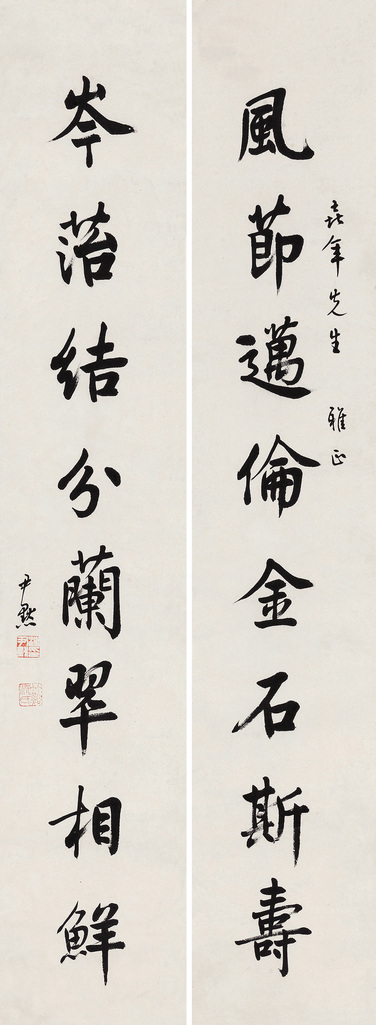 風節邁倫金石斯壽
年先生 雅正
岑菭結分蘭翠相鮮
尹默